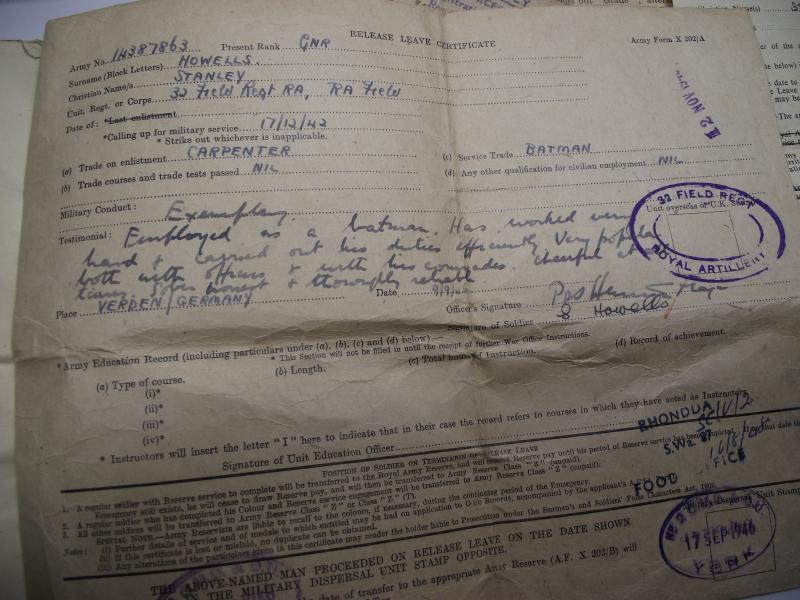 RELEASE LEAVE CERTIFICATE
Army Form X 202/A
Army No. 14387863 Present Rank GNR
Surname (Block Letters) HOWELLS.
Christian Name/s STANLEY
Unit. Regt. or Corps. 32 Field Regt RA, RA Field
Date of : *Last enlistment
*Calling up for military service 17/12/42
* Strike out whichever is inapplicable.
(a) Trade on enlistment CARPENTER (c) Service Trade BATMAN
(b) Trade courses and trade tests passed NIL (d) Any other qualification for civilian employment NIL
12 NOV
Military Conduct : Exemplary.
Unit overseas or U.K.
32 FIELD REGT
ROYAL ARTILLERY
Testimonial : Employed as a batman. Has worked very
hard & carried out his duties efficiently. Very popular
both with officers & with his comrades. Cheerful at
times. Sober honest & thoroughly reliable
Place VERDEN/GERMANY Date
Officer's Signature
Signature of Soldier S Howells
*Army Education Record (including particulars under (a), (b), (c) and (d) below).—
* This Section will not be filled in until the receipt of further War Office Instructions.
(a) Type of course. (b) Length. (c) Total hours of Instruction. (d) Record of achievement.
(i)*
(ii)*
(iii)*
(iv)*
* Instructors will insert the letter "I" here to indicate that in their case the record refers to courses in which they have acted as Instructors.
Signature of Unit Education Officer
RHONDDA
S.Wa.
FOOD OFFICE
POSITION OF SOLDIER ON TERMINATION OF RELEASE LEAVE
1. A regular soldier with Reserve service to complete will be transferred to the Royal Army Reserve, and will receive Reserve pay until his period of Reserve service has been completed.
Emergency still exists, he will cease to draw Reserve pay, and will then be transferred to Army Reserve Class "Z" (unpaid).
2. A regular soldier who has completed his Colour and Reserve service engagement will be transferred to Army Reserve Class "Z" (unpaid).
3. All other soldiers will be transferred to Army Reserve Class "Z" or Class "Z" (T).
SPECIAL NOTE.—Army Reservists are liable to recall to the colours, if necessary, during the continuing period of the Emergency.
Notes : (i) Further details of service and of medals to which entitled may be had on application to O i/c Records, accompanied by the applicant's
(ii) If this certificate is lost or mislaid, no duplicate can be obtained.
(iii) Any alterations of the particulars given in this certificate may render the holder liable to Prosecution under the Seamen's and Soldiers' False Characters Act, 1906.
17 SEP 1946
YORK
THE ABOVE-NAMED MAN PROCEEDED ON RELEASE LEAVE ON THE DATE SHOWN
IN THE MILITARY DISPERSAL UNIT STAMP OPPOSITE.
date of transfer to the appropriate Army Reserve (A.F. X 202/B) will